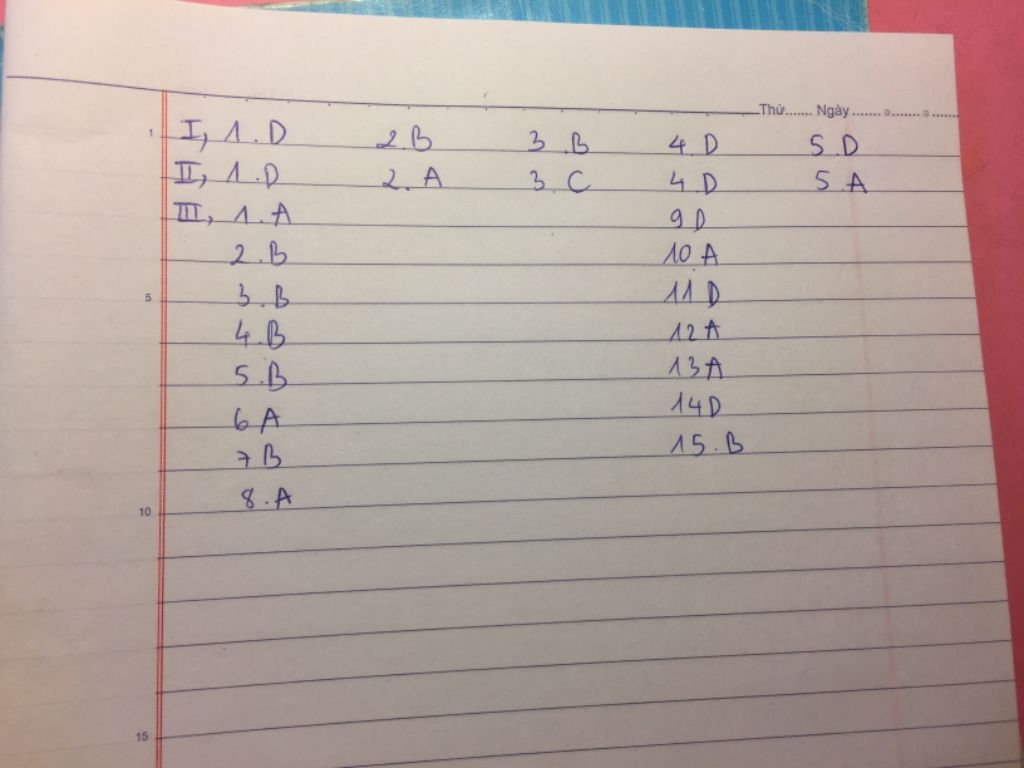 Thứ...... Ngày ....... / ....... / .......
1 I, 1.D 2.B 3.B 4.D 5.D
II, 1.D 2.A 3.C 4.D 5.A
III, 1.A 9D
2.B 10A
5 3.B 11D
4.B 12A
5.B 13A
6A 14D
7B 15.B
10 8.A
15